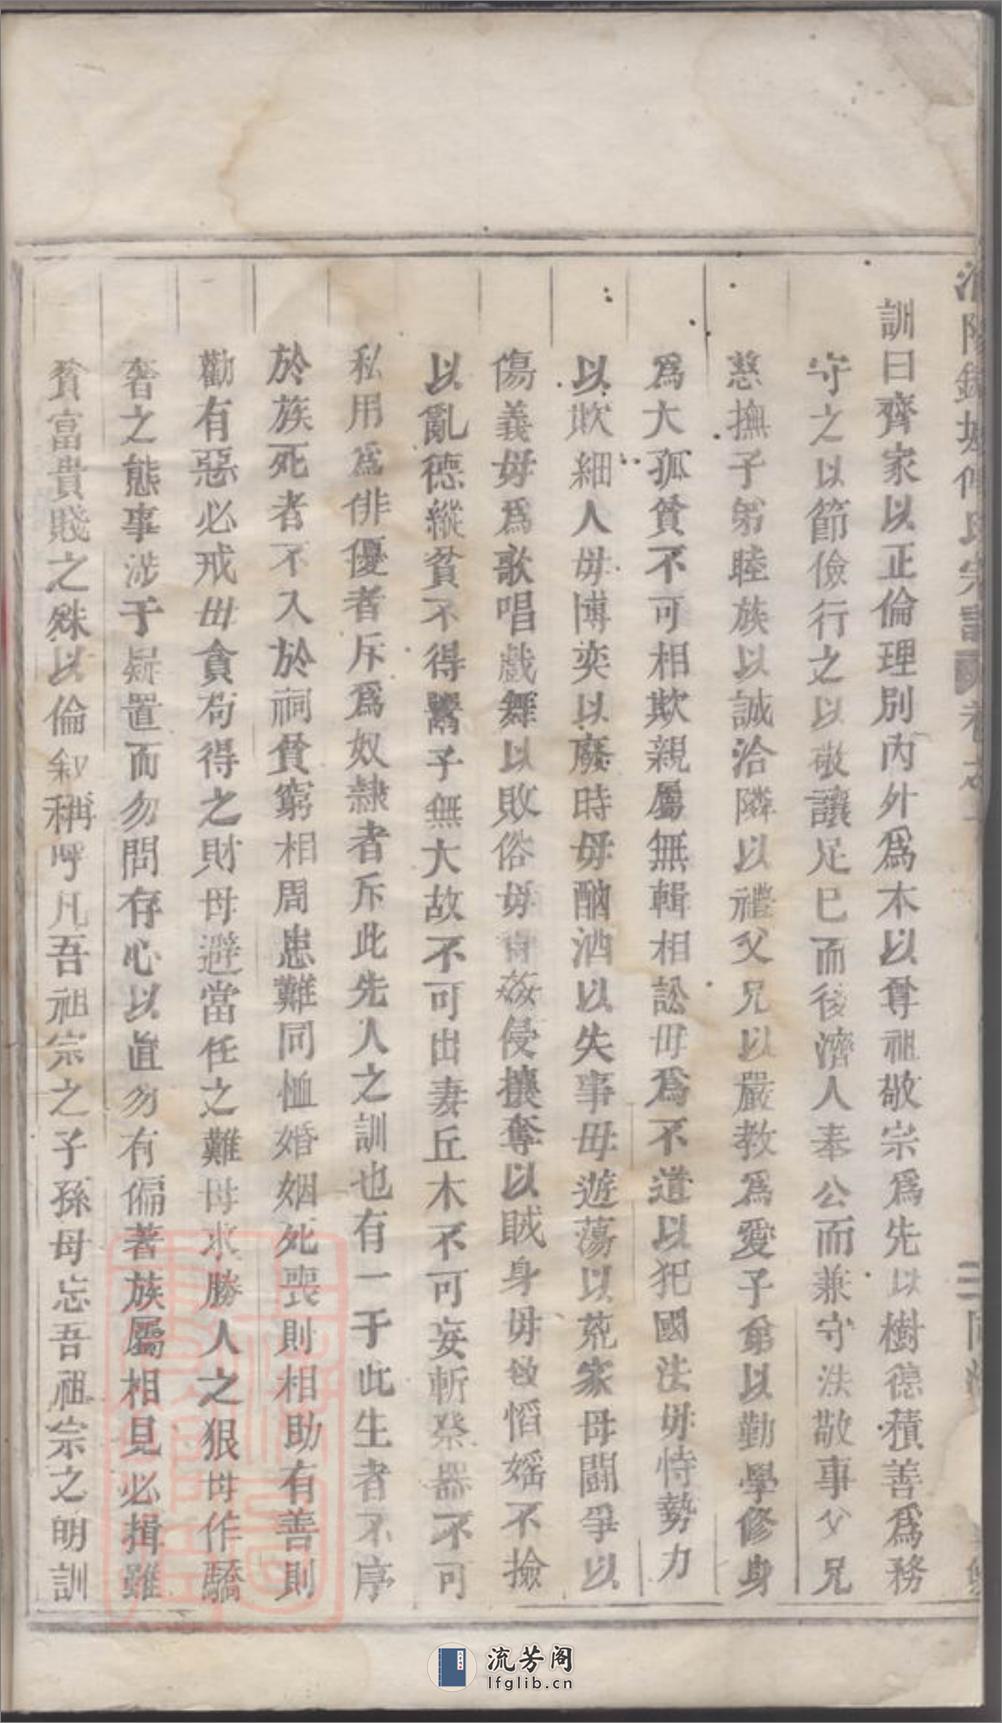 訓曰齊家以正倫理別內外爲木以尊祖敬宗爲先以樹德積善爲務
守之以節儉行之以敬讓足巳而後濟人奉公而兼守法敬事父兄
慈撫子弟睦族以誠洽隣以禮父兄以嚴教爲愛子弟以勤學修身
爲大孤貧不可相欺親屬無輯相訟毋爲不道以犯國法毋恃勢力
以欺細人毋博奕以廢時毋酗酒以失事毋遊蕩以荒家毋鬬爭以
傷義毋爲歌唱戲舞以敗俗毋姦侵攘奪以賊身毋敓慆婬不撿
以亂德縱貧不得鬻子無大故不可出妻丘木不可妄斬祭器不可
私用爲俳優者斥爲奴隸者斥此先人之訓也有一于此生者不序
於族死者不入於祠貧窮相周患難同恤婚姻死喪則相助有善則
勸有惡必戒毋貪苟得之財毋避當任之難毋求勝人之狠毋作驕
奢之態事涉于疑置而勿問存心以直勿有偏著族屬相見必揖雖
貧富貴賤之殊以倫叙稱呼凡吾祖宗之子孫毋忘吾祖宗之明訓
氏宗譜 卷之一
二
流芳阁
lfglib.cn